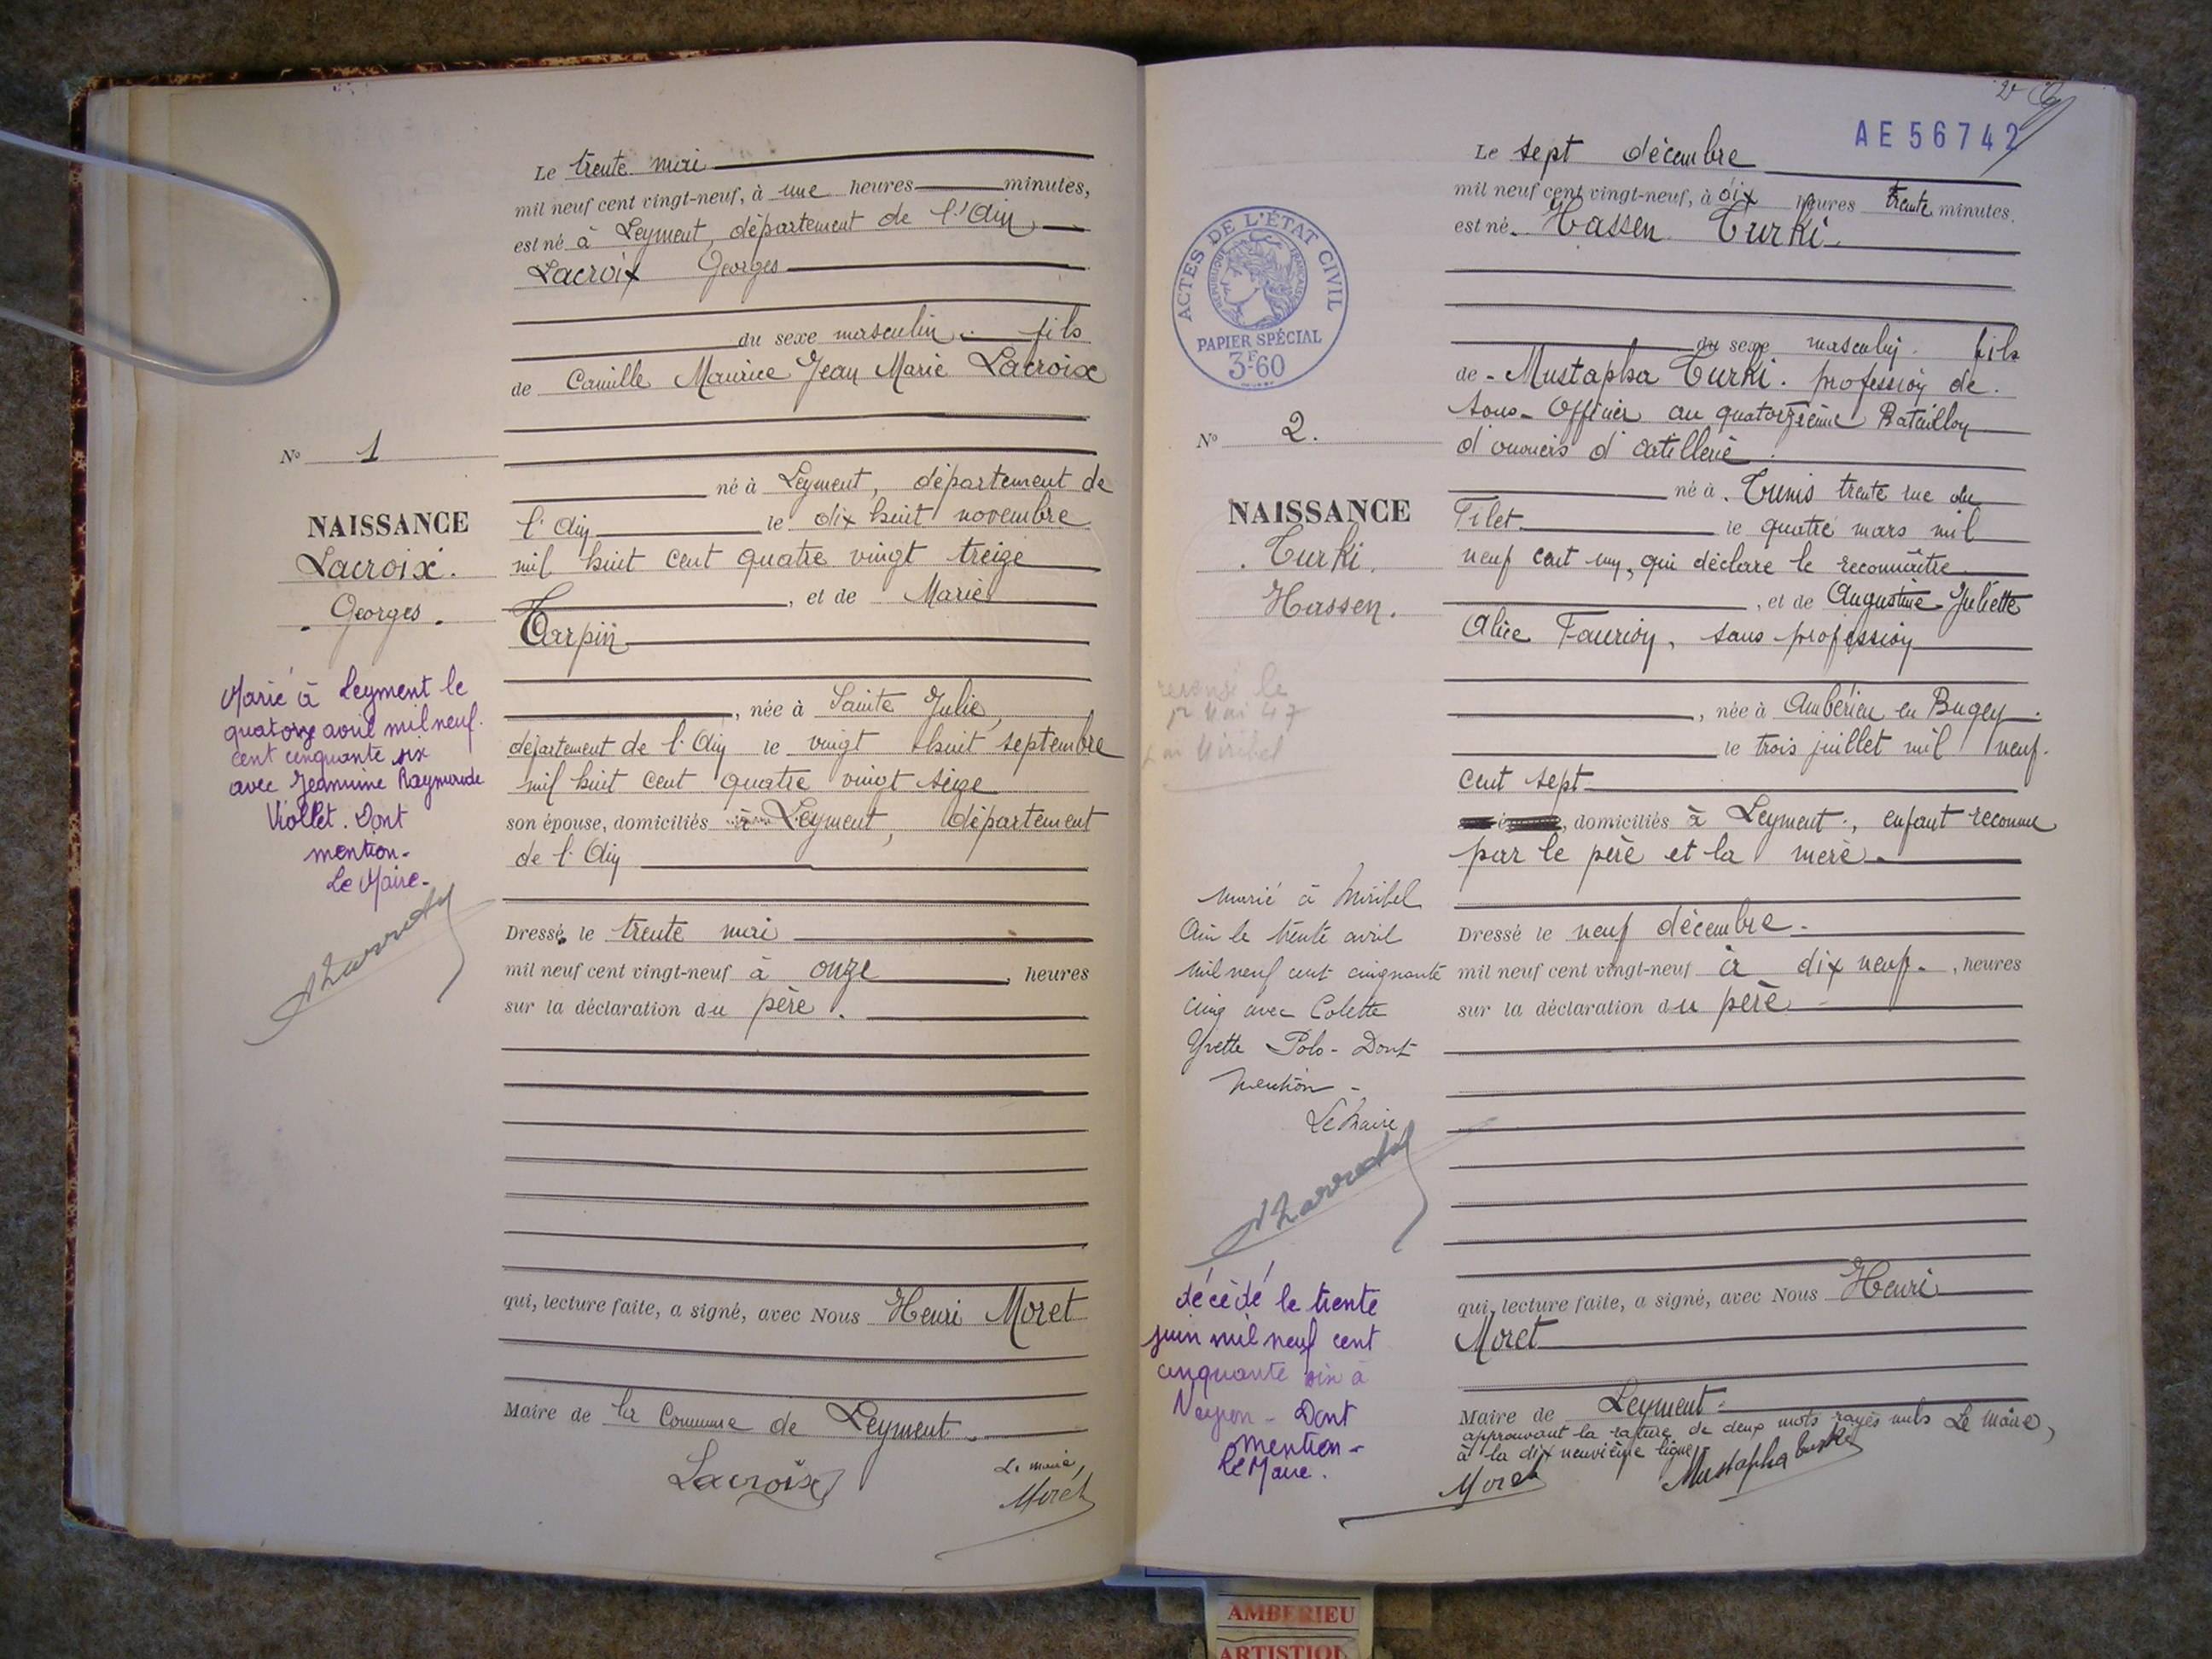 Le trente mai
mil neuf cent vingt-neuf, à une heures minutes,
est né à Leyment, département de l'Ain
Lacroix Georges
du sexe masculin. fils
de Camille Maurice Jean Marie Lacroix
No 1
né à Leyment, département de
l'Ain le dix huit novembre
mil huit cent quatre vingt treize
, et de Marie
Tarpin
, née à Sainte Julie,
département de l'Ain le vingt huit septembre
mil huit cent quatre vingt seize
son épouse, domiciliés à Leyment, département
de l'Ain
NAISSANCE
Lacroix.
Georges.
Marié à Leyment le
quatorze avril mil neuf.
cent cinquante six
avec Jeannine Raymonde
Viollet. Dont
mention.
Le Maire.
Dressé le trente mai
mil neuf cent vingt-neuf à onze, heures
sur la déclaration du père.
qui, lecture faite, a signé, avec Nous Henri Moret
Maire de la Commune de Leyment.
Lacroix
Le maire,
Moret
2
AE 56742
Le sept décembre
mil neuf cent vingt-neuf, à dix heures trente minutes.
est né. Hassen Turki.
du sexe masculin. fils
de Mustapha Turki. profession de.
Sous-Officier au quatorzième Bataillon
d'ouvriers d'artillerie.
né à. Tunis trente rue du
Filet le quatre mars mil
neuf cent un, qui déclare le reconnaître
, et de Augustine Juliette
Alice Fourion, sans profession
, née à Ambérieu en Bugey.
le trois juillet mil neuf.
cent sept
, domiciliés à Leyment., enfant reconnu
par le père et la mère.
ACTES DE L'ÉTAT CIVIL
RÉPUBLIQUE FRANÇAISE
PAPIER SPÉCIAL
3F60
No 2.
NAISSANCE
Turki.
Hassen.
le
Mai 47
Miribel
Marié à Miribel
Ain le trente avril
mil neuf cent cinquante
cinq avec Colette
Yvette Polo - Dont
mention -
Le Maire
décédé le trente
juin mil neuf cent
cinquante six à
Neyron - Dont
mention -
Le Maire.
Dressé le neuf décembre.
mil neuf cent vingt-neuf à dix neuf., heures
sur la déclaration du père
qui, lecture faite, a signé, avec Nous Henri
Moret
Maire de Leyment.
approuvant la rature de deux mots rayés nuls Le Maire,
à la dix neuvième ligne
Moret
Mustapha Turki
AMBERIEU